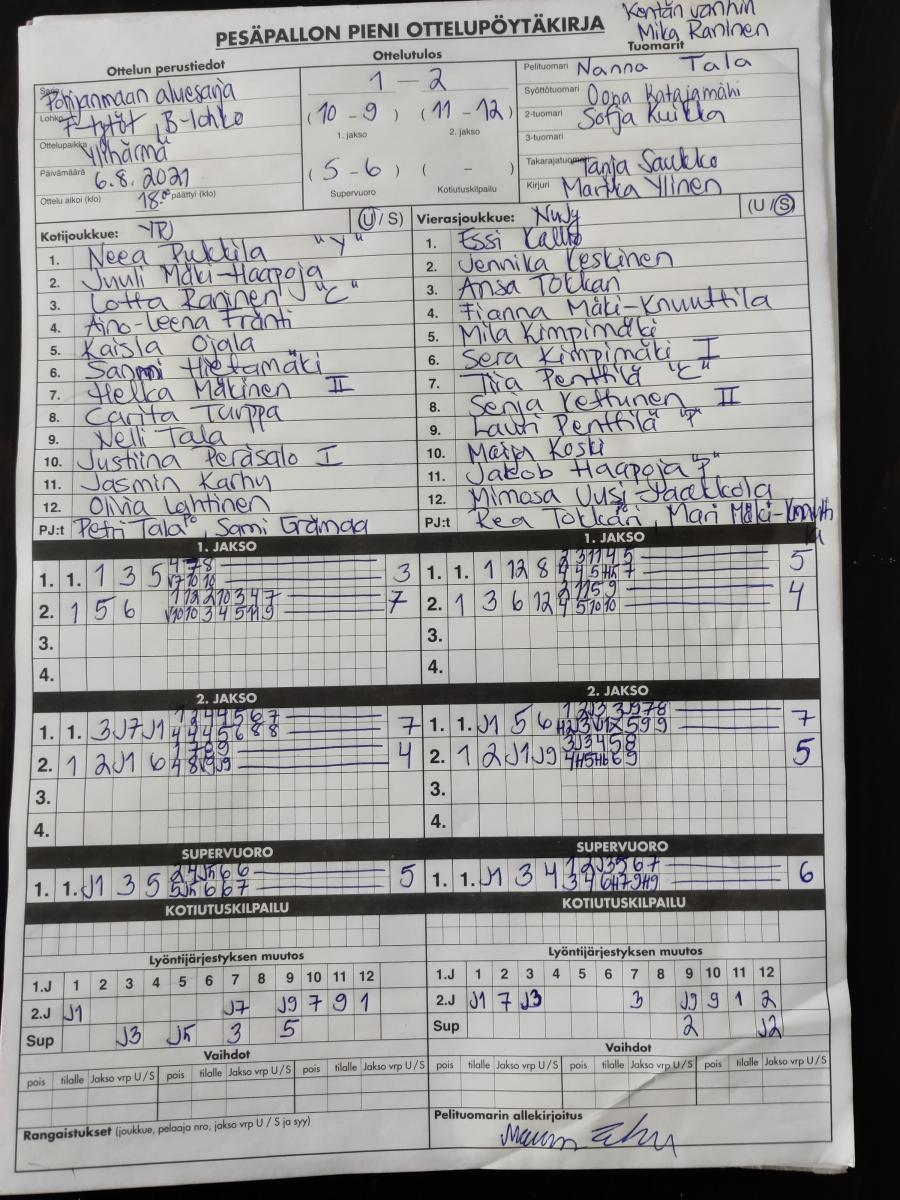 Kentän vanhin
Mika Raninen
PESÄPALLON PIENI OTTELUPÖYTÄKIRJA
Ottelun perustiedot
Ottelutulos
Tuomarit
Sarja Pohjanmaan aluesarja
Lohko F-tytöt, B-lohko
Ottelupaikka Ylihärmä
Päivämäärä 6.8.2021
Ottelu alkoi (klo) 18.00 päättyi (klo)
1 - 2
(10 - 9) (11 - 12)
1. jakso 2. jakso
(5 - 6) ( - )
Supervuoro Kotiutuskilpailu
Pelituomari Nanna Tala
Syöttötuomari Oona Katajamäki
2-tuomari Sofja Kuikka
3-tuomari
Takarajatuomari Tanja Saukko
Kirjuri Marika Ylinen
Kotijoukkue: YPJ (U / S)
1. Neea Pukkila "Y"
2. Juuli Mäki-Haapoja
3. Lotta Raninen "C"
4. Aino-Leena Fränti
5. Kaisla Ojala
6. Sanni Hietamäki
7. Helka Mäkinen II
8. Carita Turppa
9. Nelli Tala
10. Justiina Peräsalo I
11. Jasmin Karhu
12. Olivia Lahtinen
PJ:t Petri Tala, Sami Grämaa
Vierasjoukkue: NuJy (U / S)
1. Essi Kallio
2. Jennika Keskinen
3. Ansa Tokkari
4. Fianna Mäki-Knuuttila
5. Mila Kimpimäki
6. Sera Kimpimäki I
7. Tiia Penttilä "C"
8. Senja Kettunen II
9. Lauri Penttilä "P"
10. Maija Koski
11. Jakob Haapoja "P"
12. Mimosa Uusi-Jaakkola
PJ:t Rea Tokkari, Mari Mäki-Knuuttila
1. JAKSO
1. 1. 1 3 5 3
2. 1 5 6 7
3.
4.
1. JAKSO
1. 1. 1 12 8 5
2. 1 3 6 12 4
3.
4.
2. JAKSO
1. 1. 3 J7 J1 7
2. 1 2 J1 6 4
3.
4.
2. JAKSO
1. 1. J1 5 6 7
2. 1 2 J1 J9 5
3.
4.
SUPERVUORO
1. 1. J1 3 5 5
SUPERVUORO
1. 1. J1 3 4 6
KOTIUTUSKILPAILU
KOTIUTUSKILPAILU
Lyöntijärjestyksen muutos
1.J 1 2 3 4 5 6 7 8 9 10 11 12
2.J J1 J7 J9 7 9 1
Sup J3 J5 3 5
Lyöntijärjestyksen muutos
1.J 1 2 3 4 5 6 7 8 9 10 11 12
2.J J1 7 J3 3 J9 9 1 2
Sup 2 J2
Vaihdot
pois tilalle Jakso vrp U / S pois tilalle Jakso vrp U / S pois tilalle Jakso vrp U / S
Vaihdot
pois tilalle Jakso vrp U / S pois tilalle Jakso vrp U / S pois tilalle Jakso vrp U / S
Rangaistukset (joukkue, pelaaja nro, jakso vrp U / S ja syy)
Pelituomarin allekirjoitus